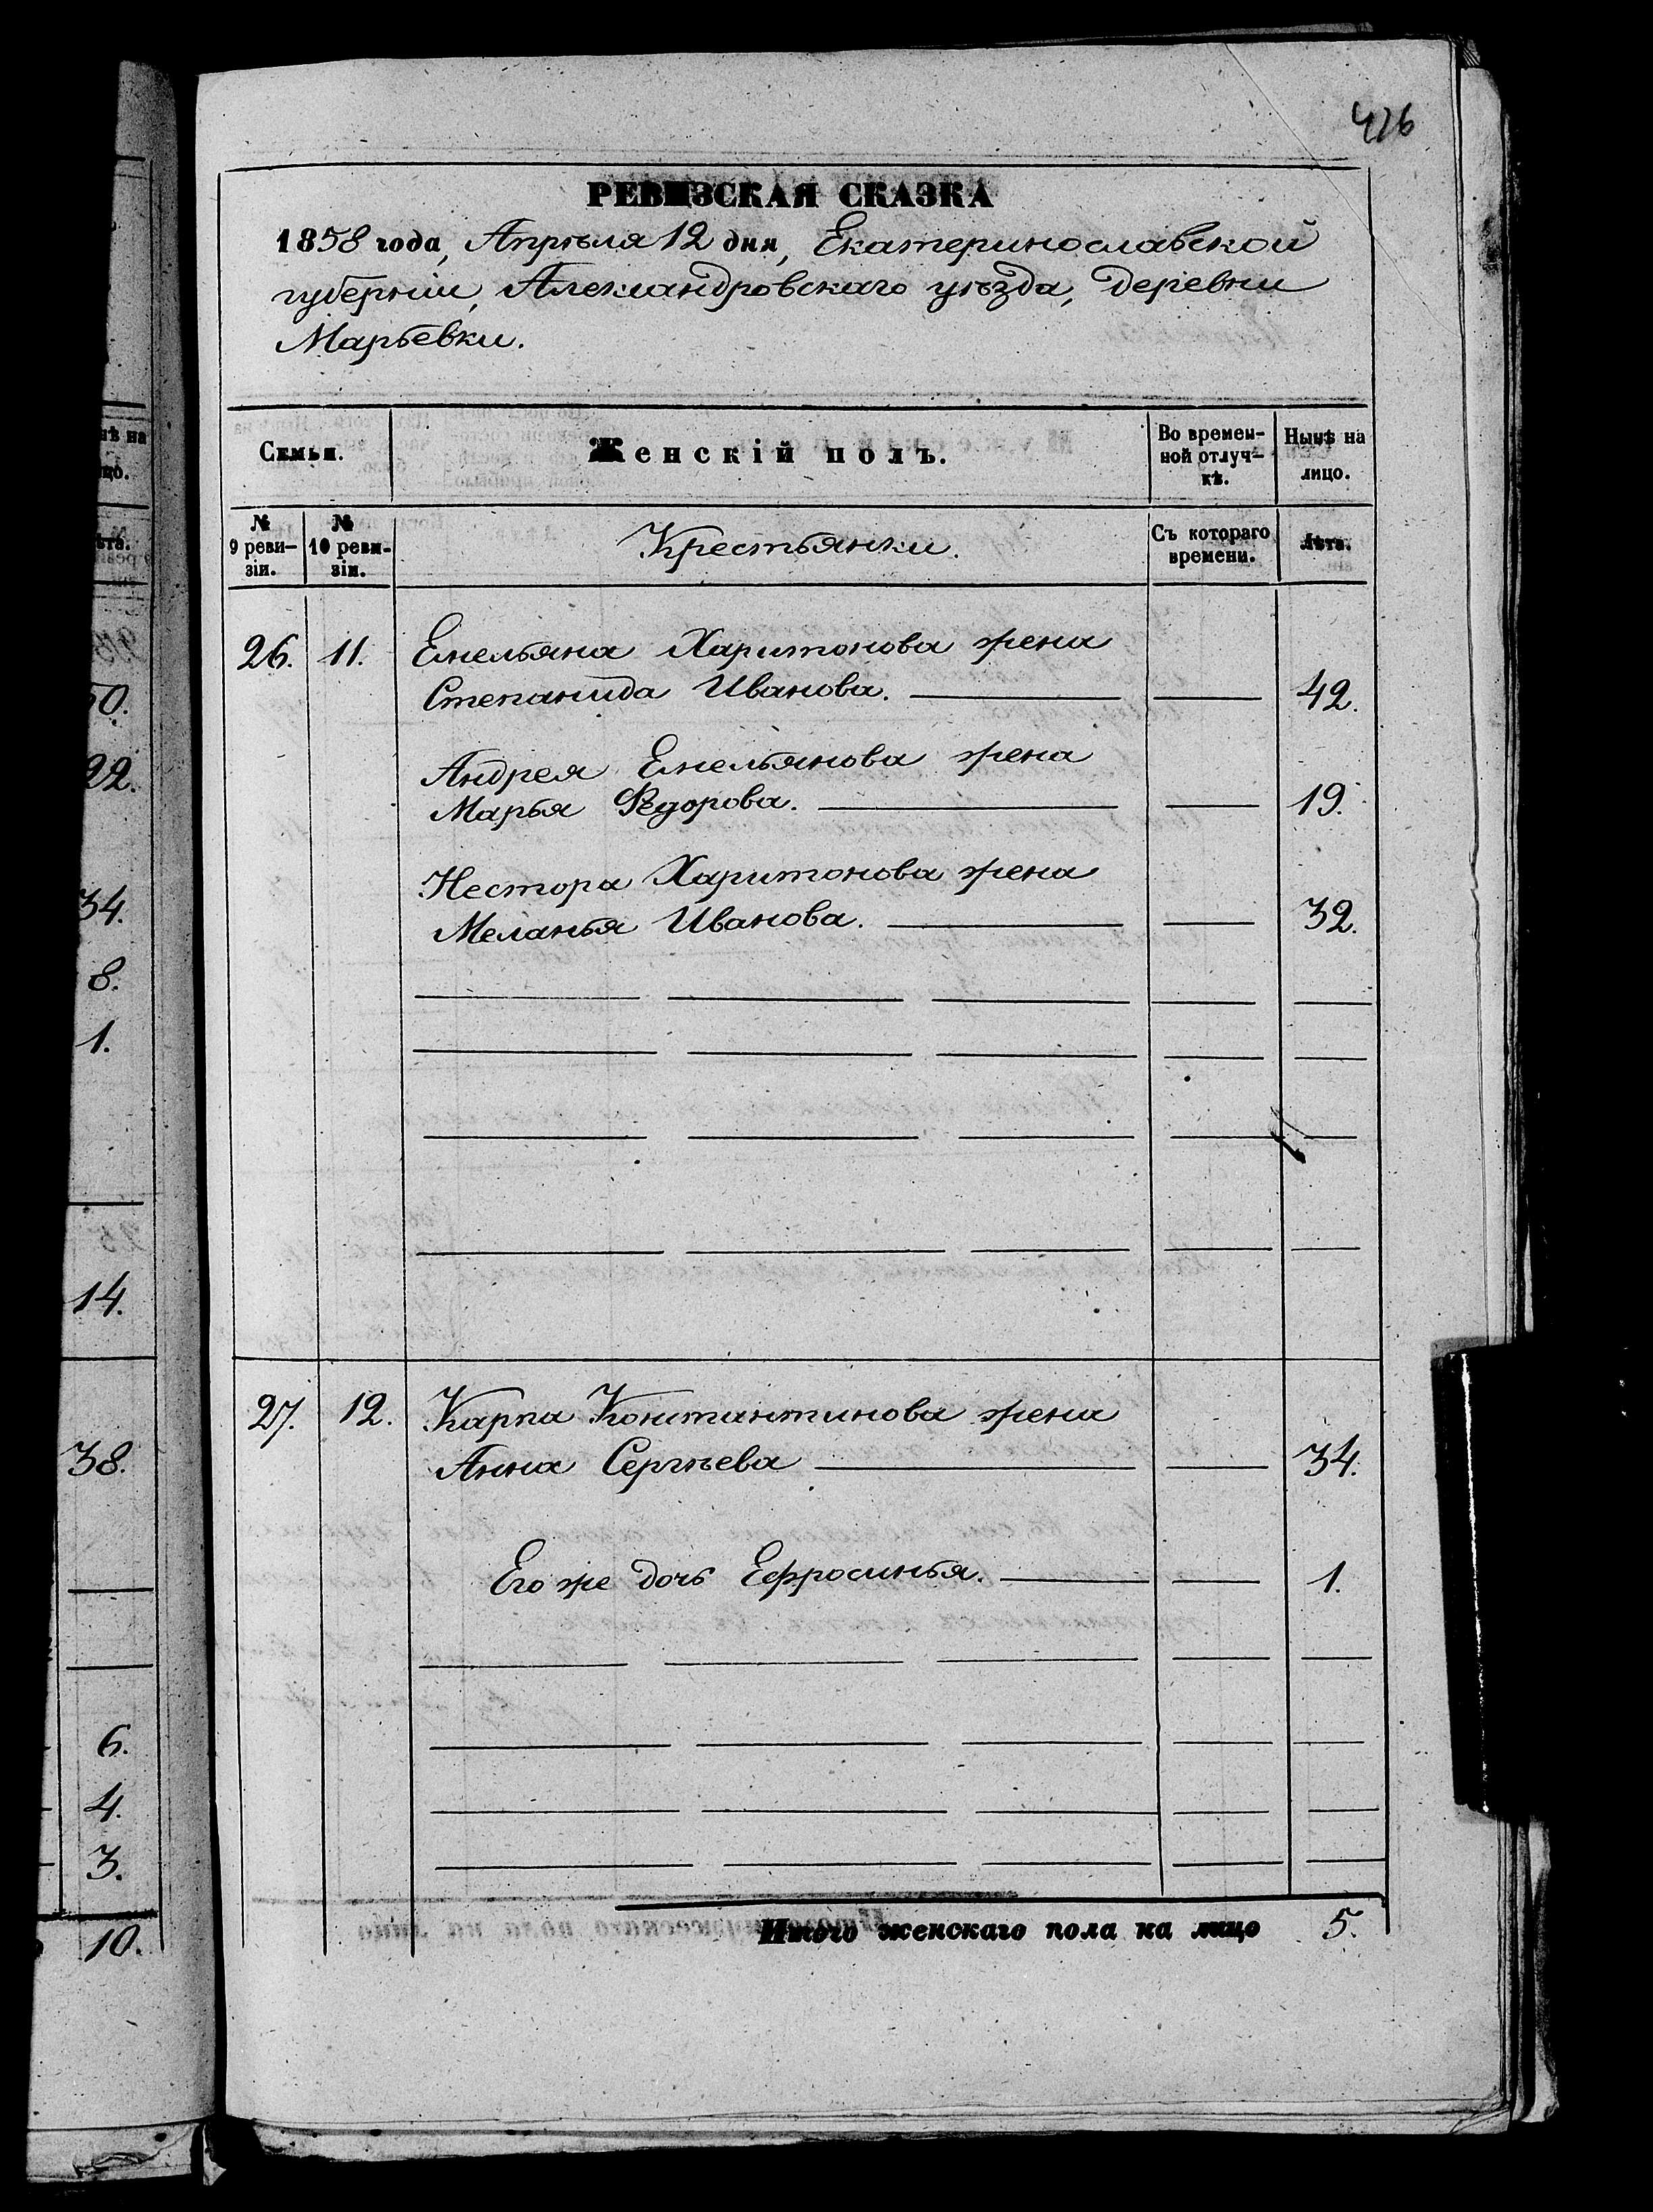 426
РЕВИЗСКАЯ СКАЗКА
1858 года, Апрѣля 12 дня, Екатеринославской
губерніи, Александровскаго уѣзда, деревни
Марьевки.
Семьи.
Женскій полъ.
Во времен-
ной отлуч-
кѣ.
Нынѣ на
лицо.
№
9 реви-
зіи.
№
10 реви-
зіи.
Крестьянки.
Съ котораго
времени.
Лѣта.
26. 11. Емельяна Харитонова жена
Степанида Иванова. 42.
Андрея Емельянова жена
Марья Ѳедорова. 19.
Нестора Харитонова жена
Меланья Иванова. 32.
27. 12. Карпа Константинова жена
Анна Сергѣева 34.
Его же дочь Ефросинья. 1.
Итого женскаго пола на лицо 5.
50.
22.
34.
8.
1.
14.
38.
6.
4.
3.
10.